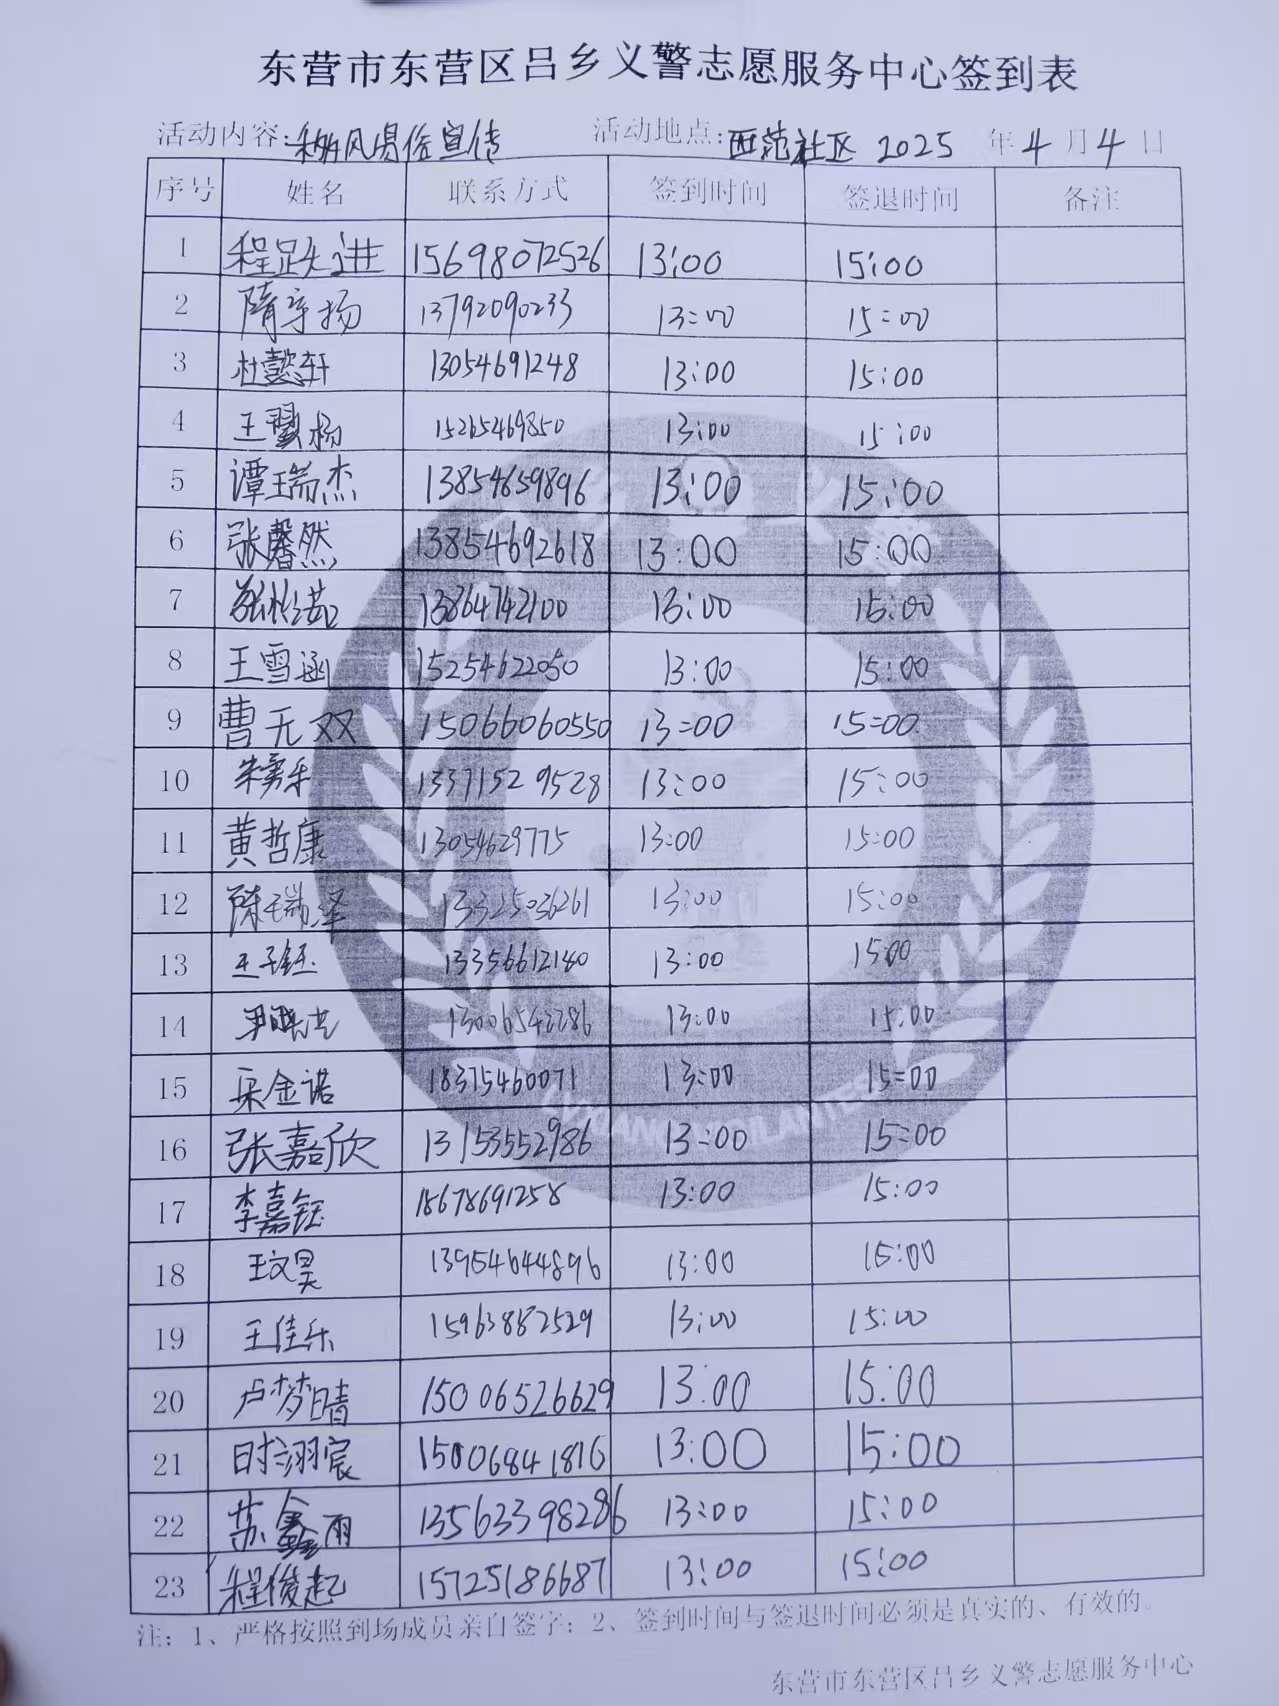 东营市东营区吕乡义警志愿服务中心签到表
活动内容:移风易俗宣传 活动地点:西范社区 2025 年 4 月 4 日
序号 姓名 联系方式 签到时间 签退时间 备注
1 程跃进 15698072526 13:00 15:00
2 隋字扬 13792090233 13:00 15:00
3 杜懿轩 13054691248 13:00 15:00
4 王翼杨 15265469850 13:00 15:00
5 谭瑞杰 13854659896 13:00 15:00
6 张馨然 13854692618 13:00 15:00
7 13864742100 13:00 15:00
8 王雪涵 15254622050 13:00 15:00
9 曹无双 15066060550 13:00 15:00
10 朱勇乐 13371529528 13:00 15:00
11 黄哲康 13054629775 13:00 15:00
12 陈瑞泽 13325036261 13:00 15:00
13 王子钰 13356612180 13:00 15:00
14 13006542286 13:00 15:00
15 梁金诺 18375460071 13:00 15:00
16 张嘉欣 13153552986 13:00 15:00
17 李嘉钰 18678691258 13:00 15:00
18 王文昊 13954644896 13:00 15:00
19 王佳乐 15963882529 13:00 15:00
20 卢梦晴 15006526629 13:00 15:00
21 时翊宸 15006841816 13:00 15:00
22 苏鑫雨 13563398286 13:00 15:00
23 程俊起 15725186687 13:00 15:00
LVXIANG VIGILANTES
注:1、严格按照到场成员亲自签字;2、签到时间与签退时间必须是真实的、有效的。
东营市东营区吕乡义警志愿服务中心